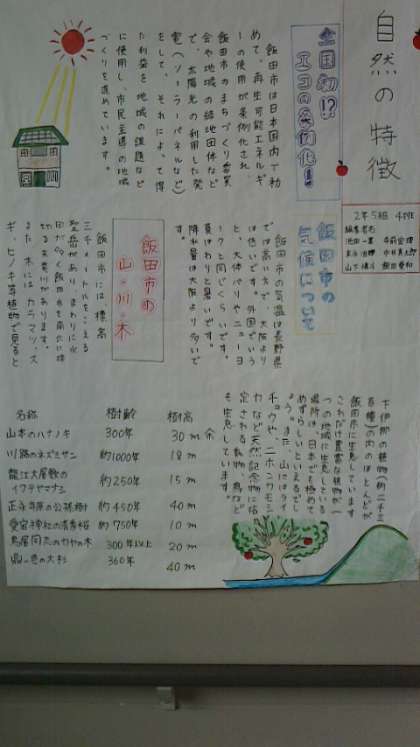 自然の特徴
2年5組 4班
編集者名
全国初!?
エコの条例化!
飯田市は日本国内で初
めて、再生可能エネルギ
ーの使用が条例化され、
飯田市のまちづくり委員
会や地域の認可地団体など
で、太陽光の利用した発
電(ソーラーパネルなど)
をして、それによって得
た利益を地域の課題など
に使用し、市民主導の地域
づくりを進めています。
飯田市の
気候について
飯田市の気温は長野県
では高いですが、大阪より
は低いです。外国でいう
と、大体パリやニューヨ
ークと同じくらいです。
夏はわりと暑いです。
降水量は大阪より多いで
す。
飯田市の
山・川・木
飯田市には標高
三千メートルをこえる
聖岳があり、まわりに火
山がなく飯田市を南北に横
切る天竜川があります。
また木にはカラマツ、ス
ギ、ヒノキ等植物で見ると
下伊那の植物(約二千三
百種)の内のほとんどが
飯田市に生息しています。
これだけ豊富な植物が一
つの地域に生息している
場所は、日本でも極めて
めずらしいといえるでし
ょう。また、山にはライ
チョウや、ニホンカモシ
カなど天然記念物に指
定される動物、鳥など
も生息しています。
名称 樹齢 樹高
山本のハナノキ 300年 30m余
川路のネズミサシ 約1000年 18m
龍江大屋敷の
イワテヤマナシ 約250年 15m
正永寺原の公孫樹 約450年 40m
愛宕神社の清秀桜 約750年 10m
300年以上 20m
360年 40m